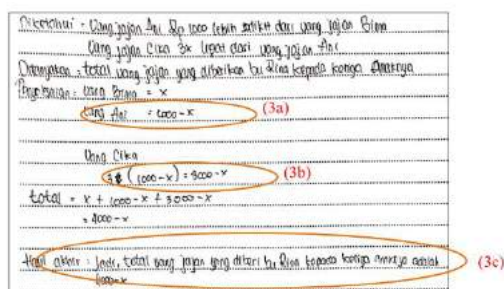 Diketahui : Uang jajan Ani Rp 1000 lebih sedikit dari uang jajan Bima
Uang jajan Cika 3x lipat dari uang jajan Ani
Ditanyakan = total uang jajan yang diberikan bu Rina kepada ketiga anaknya
Penyelesaian = Uang Bima = x
Uang Ani = 1000 - x (3a)
Uang Cika
3 (1000 - x) = 3000 - x (3b)
total = x + 1000 - x + 3000 - x
= 4000 - x
Hasil akhir : Jadi, total uang jajan yang diberi bu Rina kepada ketiga anaknya adalah (3c)
4000 - x